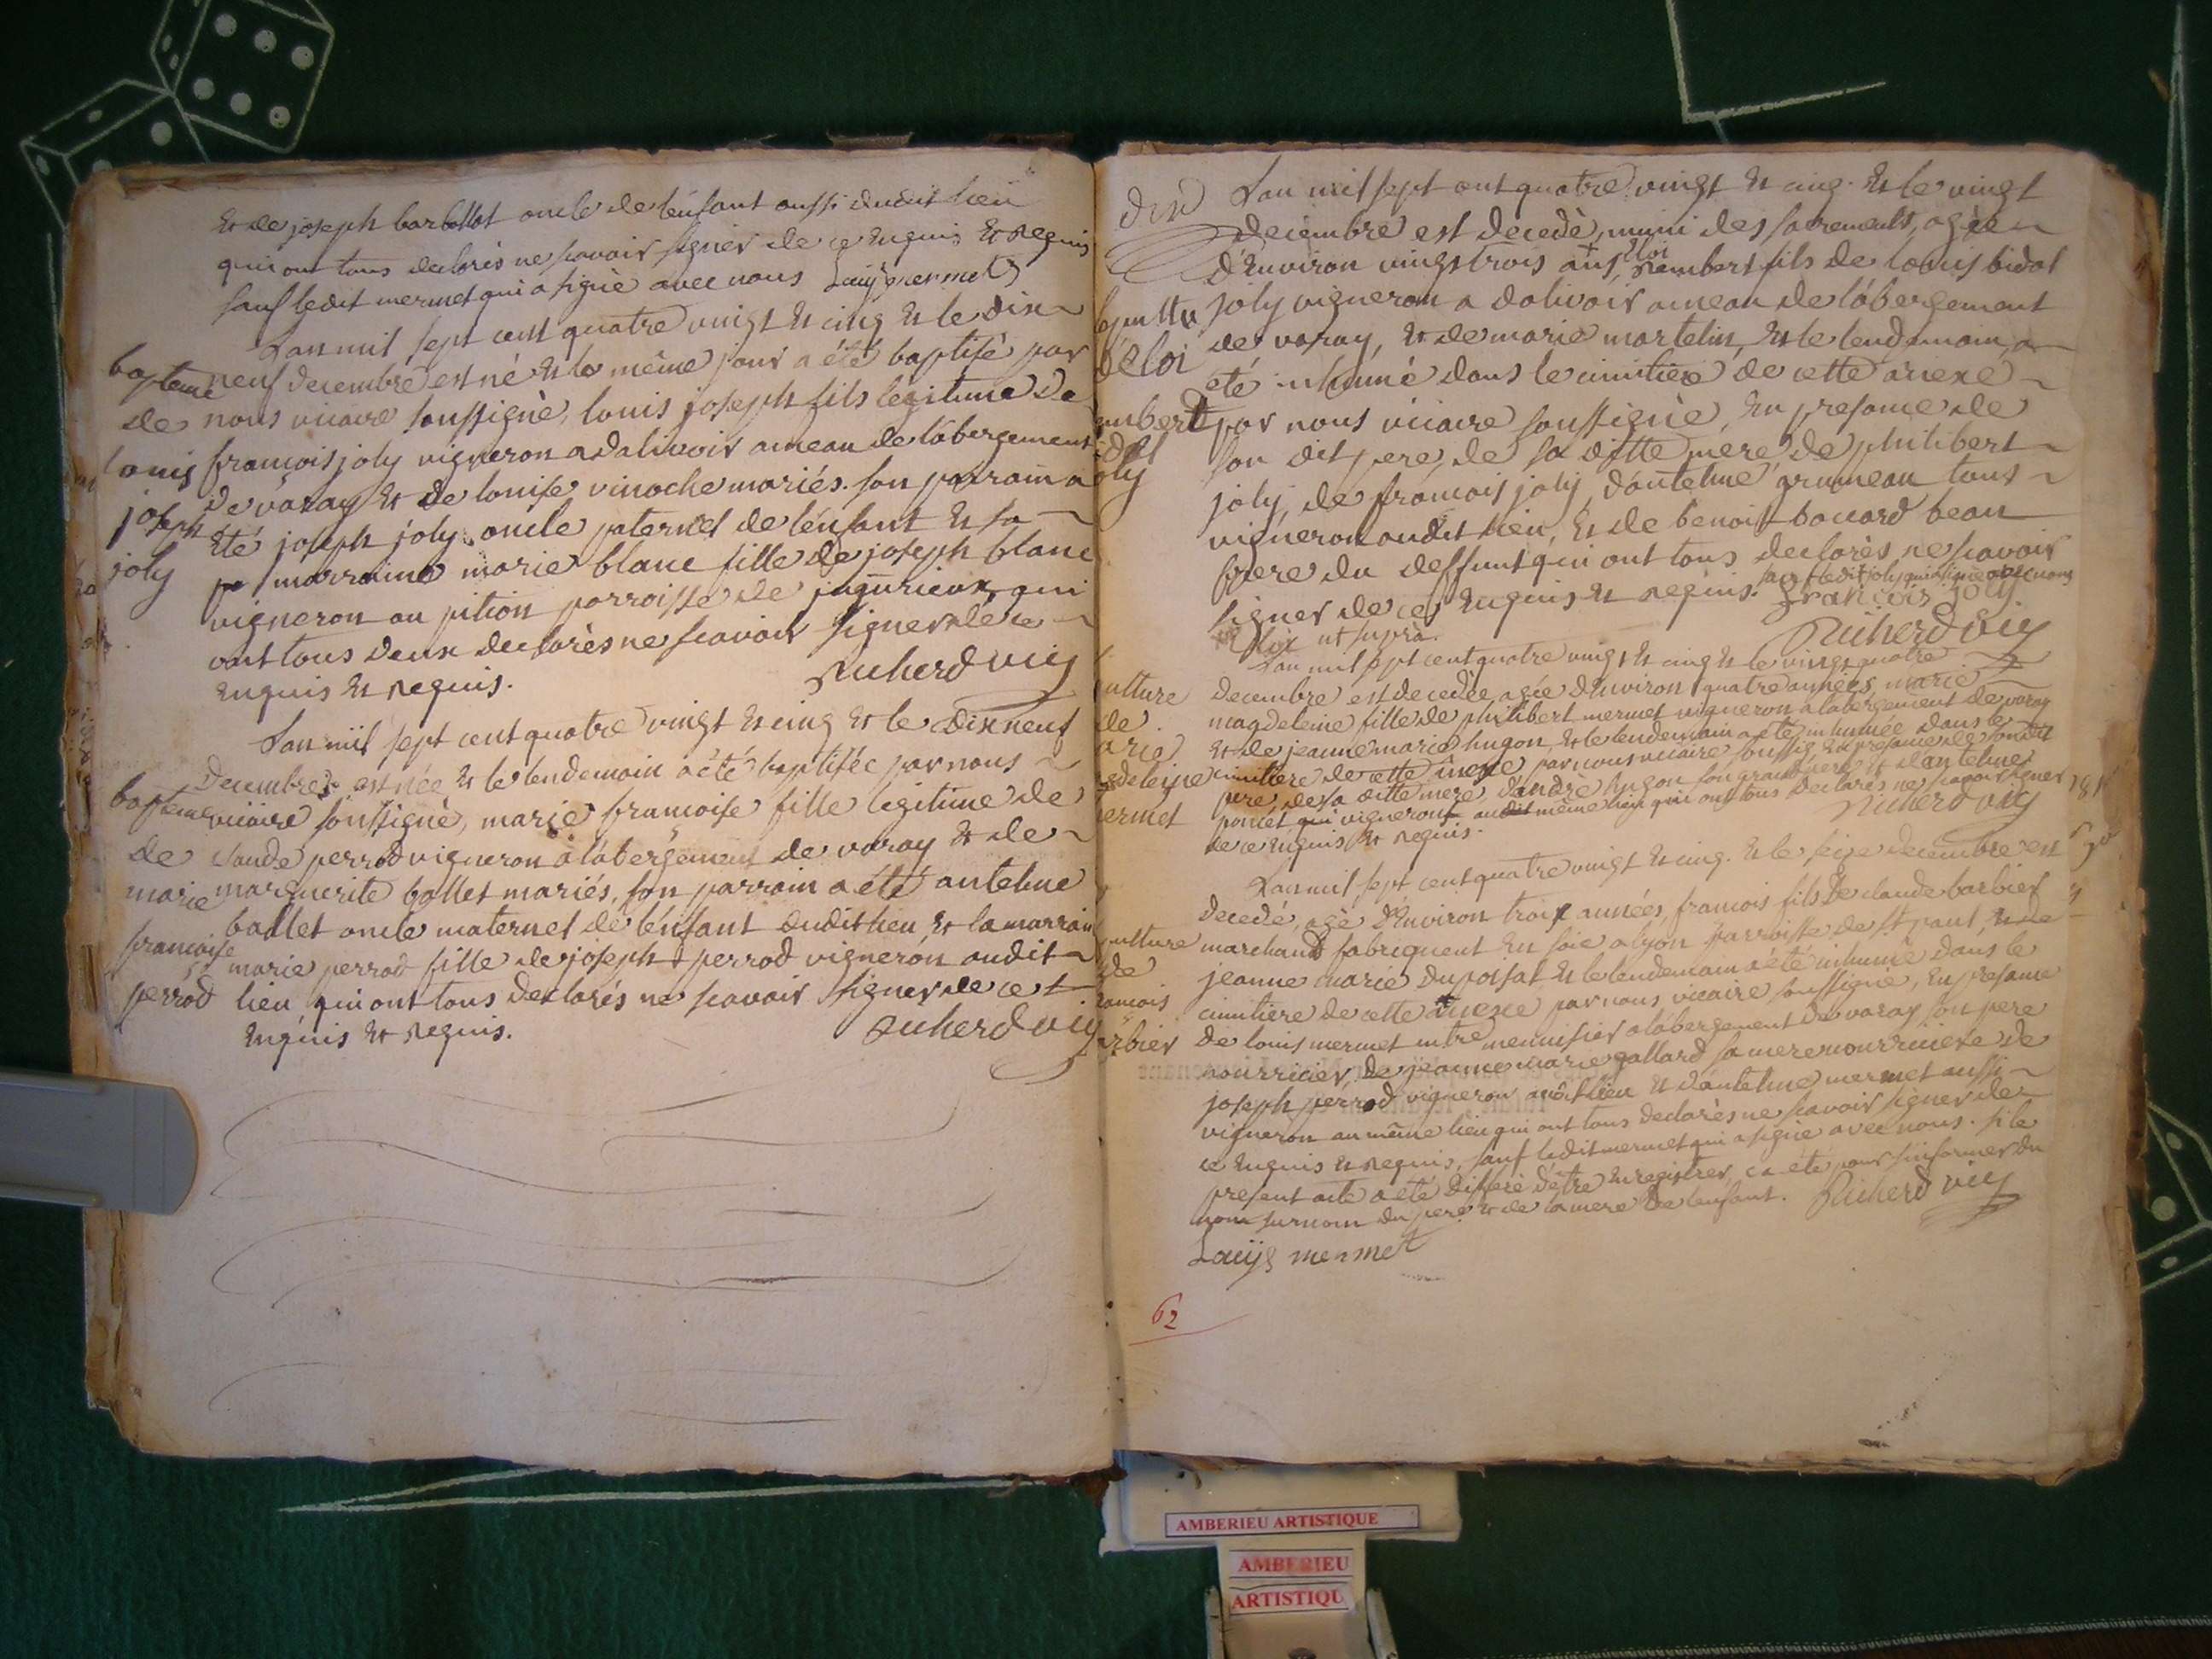 Et de joseph barbollat oncle de l'enfant aussi dudit lieu
qui ont tous declarès ne scavoir signer de ce Enquis Et Requis
sauf ledit mermet qui a signè avec nous Lauÿs mermet
Lan mil sept cent quatre vingt Et cinq Et le dix
neuf decembre est né Et le même jour a été baptisè par
nous vicaire soussignè, louis joseph fils legitime de
francois joly vigneron a dalivoir ameau de l'abergement
de varay Et de louise vinoche mariés. son parrain a
Eté joseph joly oncle paternel de l'enfant Et sa
marraine marie blanc fille de joseph blanc
vigneron au pition parroisse de jujurieux, qui
ont tous deux declarès ne scavoir signer de ce
Enquis Et Requis. Richerd vic
bapteme
de
louis
joseph
joly
Lan mil sept cent quatre vingt Et cinq Et le dix neuf
Decembre est née Et le lendemain a été baptisée par nous
vicaire soussignè, marie francoise fille legitime de
claude perrod vigneron a l'abergement de varay Et de
marguerite ballet mariés, son parrain a été antelme
ballet oncle maternel de l'enfant dudit lieu, Et la marraine
marie perrod fille de joseph perrod vigneron audit
lieu, qui ont tous declarés ne scavoir signer de ce
Enquis Et Requis. Richerd vic
bapteme
de
marie
francoise
perrod
Lan mil sept cent quatre vingt Et cinq. Et le vingt
decembre est decedè, muni des sacrements, agè
d'Environ vingt trois ans, Rembert fils de louis bidal
joly vigneron a dalivoir ameau de l'abergement
de varay, Et de marie martelin, Et le lendemain, a
été inhumé dans le cimitiere de cette anexe
par nous vicaire soussignè, En presance de
son dit pere, de sa ditte mere, de philibert
joly, de francois joly, d'antelme grumeau tous
vigneron audit lieu, Et de benoit bouard beau
frere du deffunt qui ont tous declarès ne scavoir
signer de ce Enquis Et Requis. sauf ledit joly qui a signè avec nous
francois joly
Eloi ut supra. Richerd vic
sepultu
d'Eloi
mbert
dal
oly
Lan mil sept cent quatre vingt Et cinq Et le vingt quatre
decembre est decedée, agée d'Environ quatre années, marie
magdeleine fille de philibert mermet vigneron a l'abergement de varay
Et de jeanne marie hugon, Et le lendemain a été inhumée dans le
cimitiere de cette anexe par nous vicaire soussig. En presance de son dit
pere, de sa ditte mere, d'andrè hugon son grand pere Et d'antelme
poncet qui vigneron audit même lieu qui ont tous declarés ne scavoir signer
de ce Enquis Et Requis. Richerd vic
ulture
de
arie
gdeleine
ermet
Lan mil sept cent quatre vingt Et cinq. Et le seize decembre est
decedé, agè d'Environ trois années, francois fils de claude barbier
marchand fabriquent En soie a lyon parroisse de st paul, Et de
jeanne marie dupoisat Et le lendemain a été inhumè dans le
cimitiere de cette anexe par nous vicaire soussignè, En presance
de louis mermet mtre menuisier a l'abergement de varay son pere
nourricier, de jeanne marie gallard sa mere nourriciere de
joseph perrod vigneron audit lieu Et d'antelme mermet aussi
vigneron au même lieu qui ont tous declarès ne scavoir signer de
ce Enquis Et Requis, sauf ledit mermet qui a signè avec nous. si le
present acte a été differé d'être Enregistrer, ca été pour s'informer du
nom surnom du pere Et de la mere de l'enfant. Richerd vic
Lauÿs mermet
ulture
de
ancois
arbier
62
AMBERIEU ARTISTIQUE
AMBERIEU
ARTISTIQU